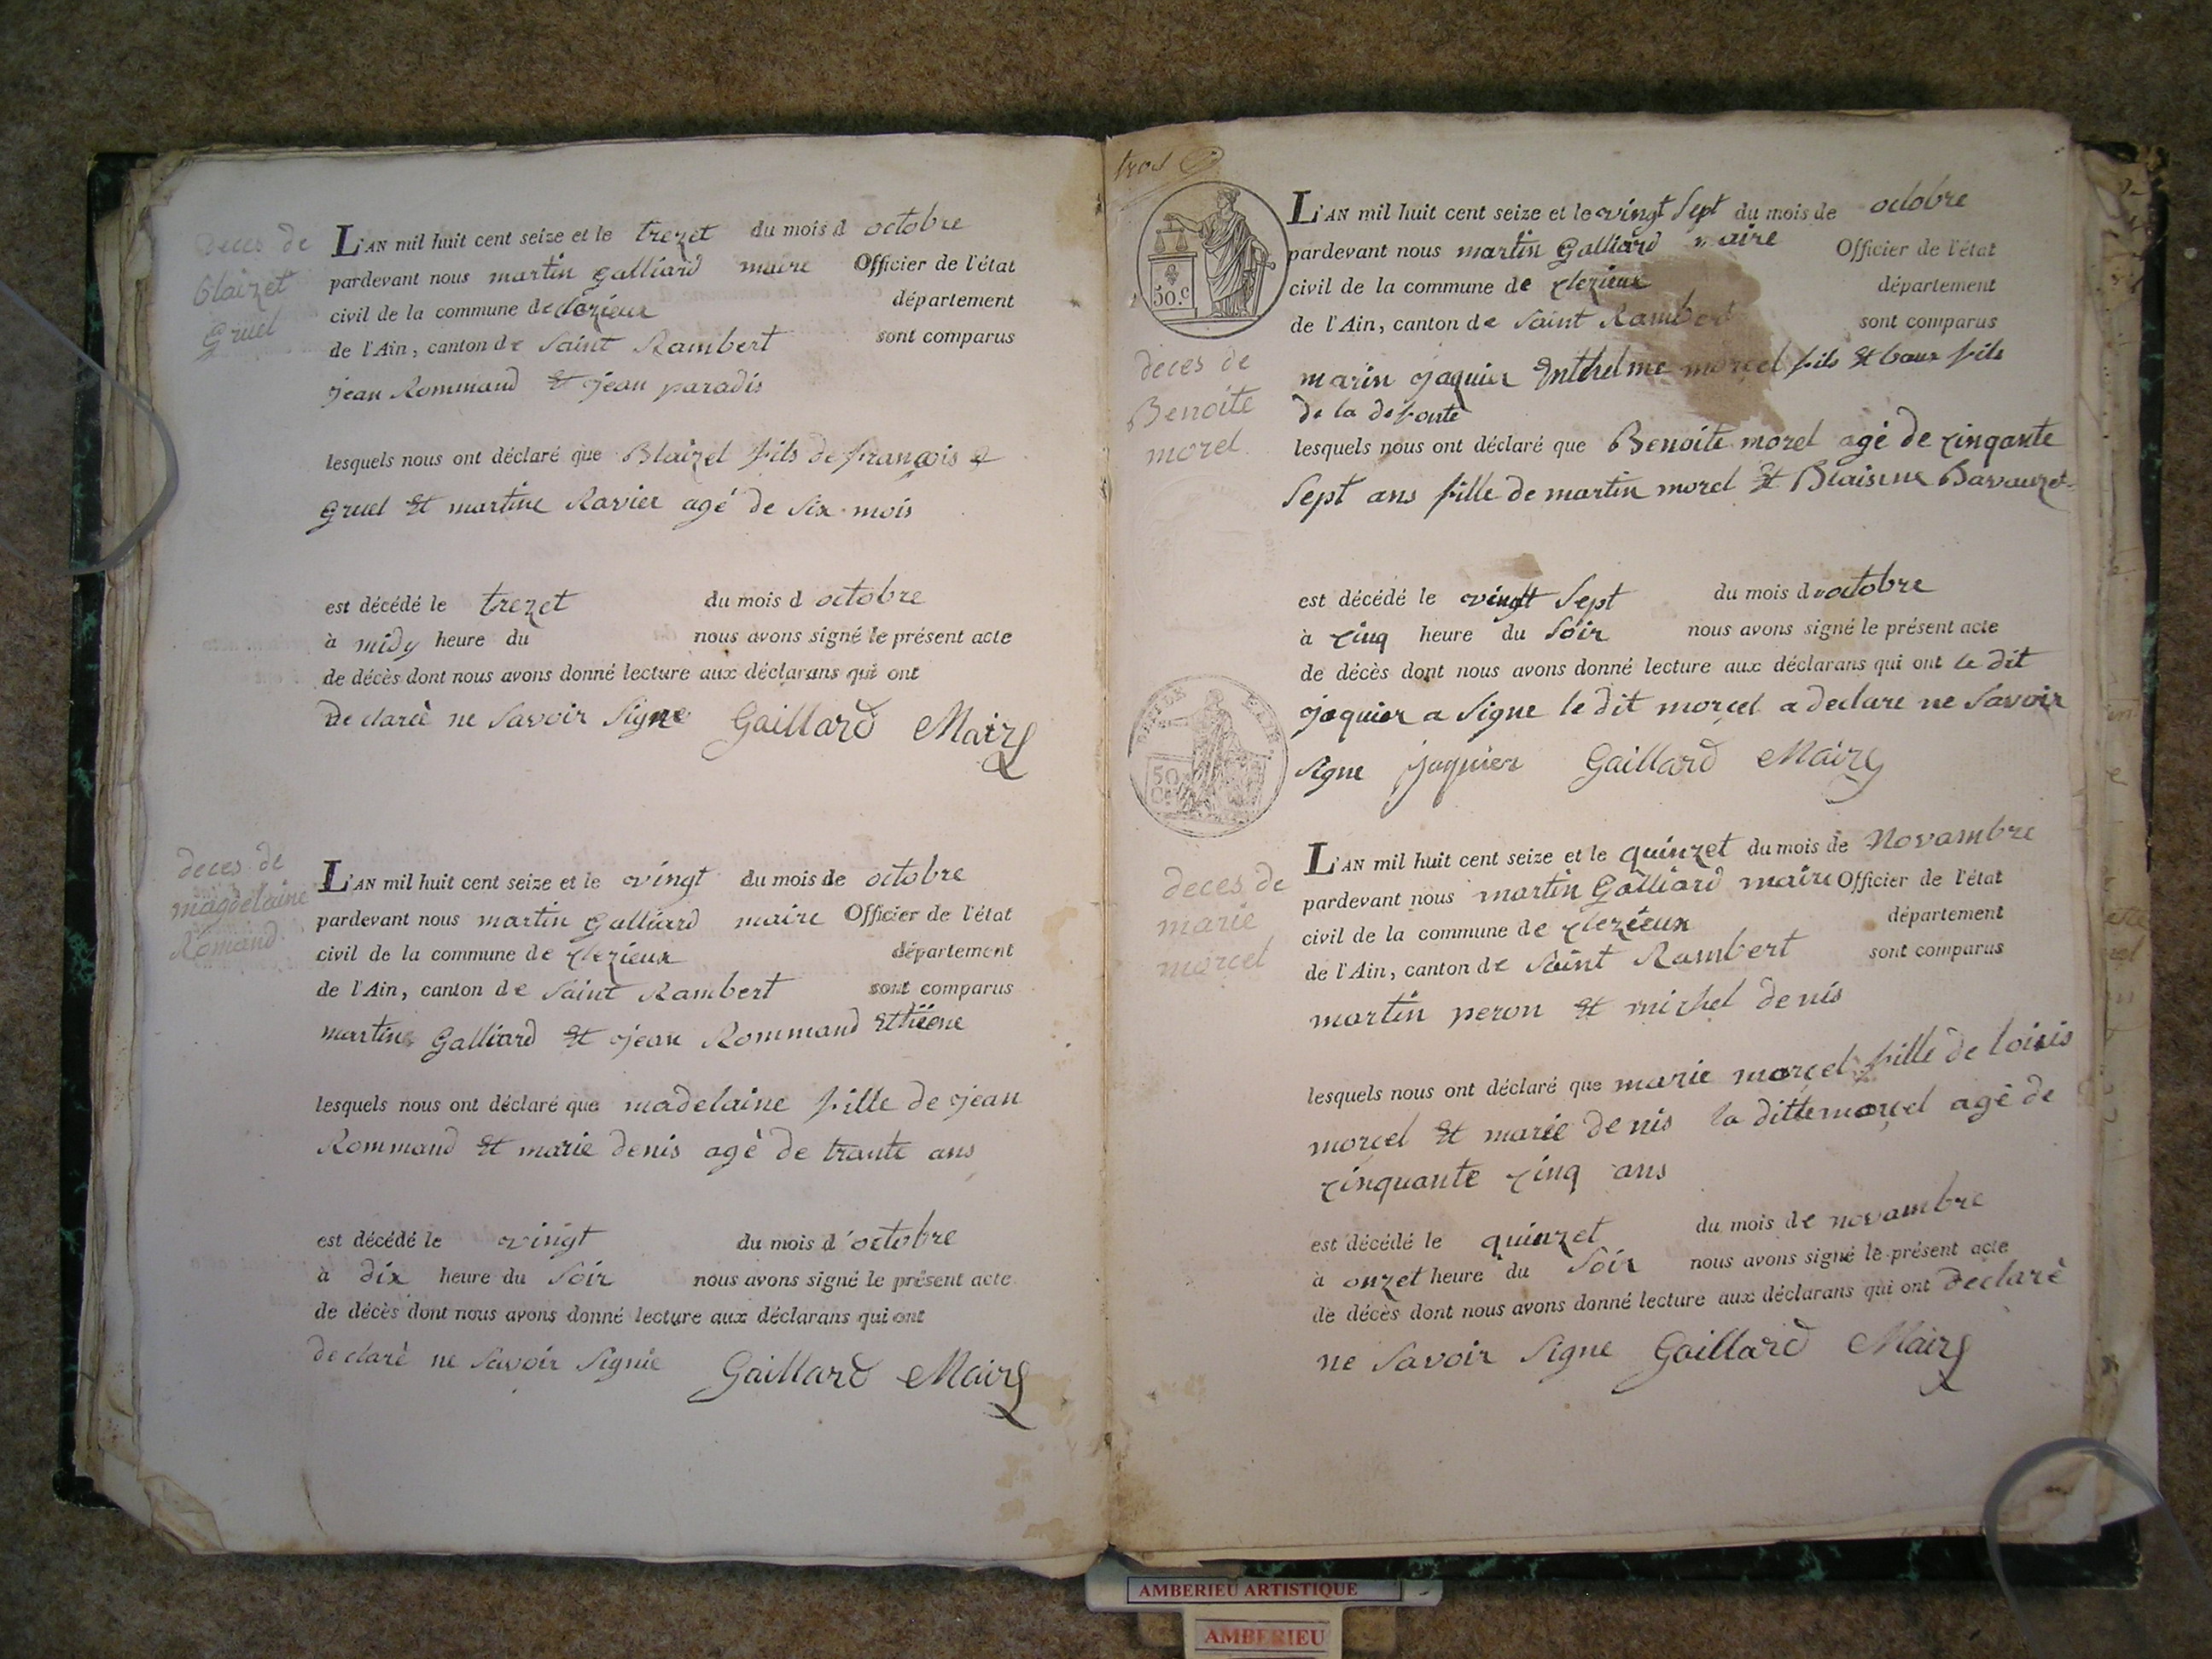 deces de
blaizet
gruel
L'AN mil huit cent seize et le trezet du mois d octobre
pardevant nous martin galliard maire Officier de l'état
civil de la commune de clezieux département
de l'Ain, canton de Saint Rambert sont comparus
jean Rommand et jean paradis
lesquels nous ont déclaré que Blaizet fils de françois
gruel et martine Ravier agé de Six mois
est décédé le trezet du mois d octobre
à midy heure du nous avons signé le présent acte
de décès dont nous avons donné lecture aux déclarans qui ont
declaré ne Savoir Signe Gaillard Maire
deces de
magdelaine
Romand
L'AN mil huit cent seize et le vingt du mois de octobre
pardevant nous martin Galliard maire Officier de l'état
civil de la commune de clezieux département
de l'Ain, canton de Saint Rambert sont comparus
martin Galliard et jean Rommand
lesquels nous ont déclaré que madelaine fille de jean
Rommand et marie denis agé de trante ans
est décédé le vingt du mois d'octobre
à dix heure du Soir nous avons signé le présent acte
de décès dont nous avons donné lecture aux déclarans qui ont
declaré ne Savoir Signie Gaillard Maire
50.c
deces de
Benoite
morel
L'AN mil huit cent seize et le vingt Sept du mois de octobre
pardevant nous martin Galliard maire Officier de l'état
civil de la commune de clezieux département
de l'Ain, canton de Saint Rambert sont comparus
marin jaquier Enthelme morcel fils et baux fils
de la defonte
lesquels nous ont déclaré que Benoite morel agé de cinqante
Sept ans fille de martin morel et Blaisine
est décédé le vingt Sept du mois d octobre
à cinq heure du Soir nous avons signé le présent acte
de décès dont nous avons donné lecture aux déclarans qui ont le dit
jaquier a Signe le dit morcel a declare ne Savoir
Signe jaquier Gaillard Maire
50
deces de
marie
morcel
L'AN mil huit cent seize et le quinzet du mois de Novambre
pardevant nous martin Galliard maire Officier de l'état
civil de la commune de clezieux département
de l'Ain, canton de Saint Rambert sont comparus
martin peron et michel denis
lesquels nous ont déclaré que marie morcel fille de loiuis
morcel et marie denis la ditte morcel agé de
cinquante cinq ans
est décédé le quinzet du mois de novambre
à onzet heure du Soir nous avons signé le présent acte
de décès dont nous avons donné lecture aux déclarans qui ont declaré
ne Savoir Signe Gaillard Maire
AMBERIEU ARTISTIQUE
AMBERIEU